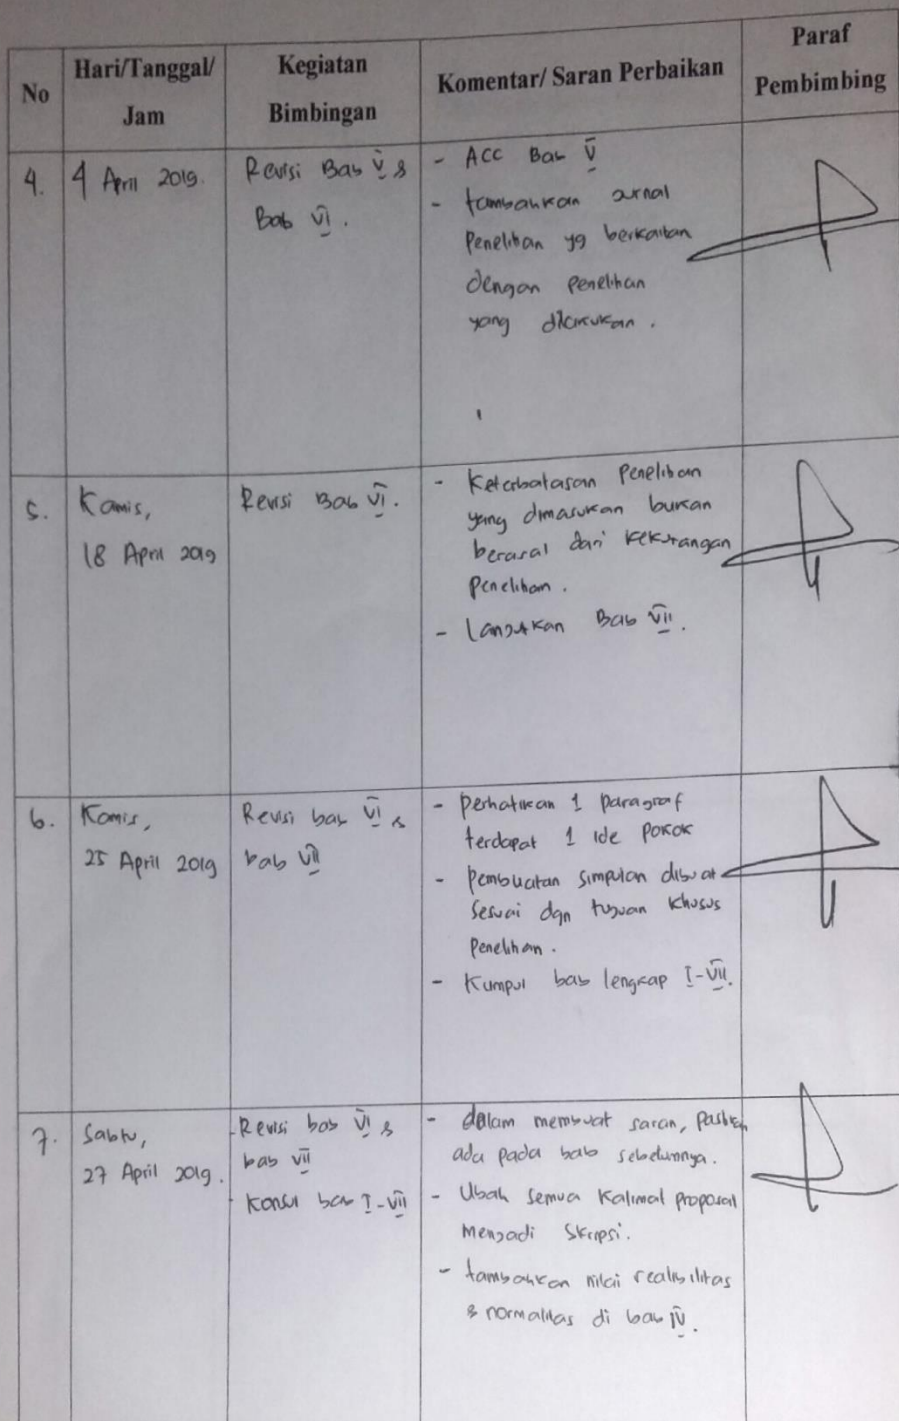 No
Hari/Tanggal/
Jam
Kegiatan
Bimbingan
Komentar/ Saran Perbaikan
Paraf
Pembimbing
4.
4 April 2019.
Revisi Bab V &
Bab VI.
- ACC Bab V
- tambahkan jurnal
Penelitian yg berkaitan
dengan penelitian
yang dilakukan.
5.
Kamis,
18 April 2019
Revisi Bab VI.
- Keterbatasan Penelitian
yang dimasukan bukan
berasal dari kekurangan
Penelitian.
- Lanjutkan Bab VII.
6.
Kamis,
25 April 2019
Revisi bab VI &
bab VII
- perhatikan 1 paragraf
terdapat 1 ide pokok
- pembuatan simpulan dibuat
sesuai dgn tujuan khusus
Penelitian.
- Kumpul bab lengkap I-VII.
7.
Sabtu,
27 April 2019.
- Revisi bab VI &
bab VII
- Konsul bab I-VII
- dalam membuat saran, pastikan
ada pada bab sebelumnya.
- Ubah semua kalimat proposal
menjadi skripsi.
- tambahkan nilai realibilitas
& normalitas di bab IV.